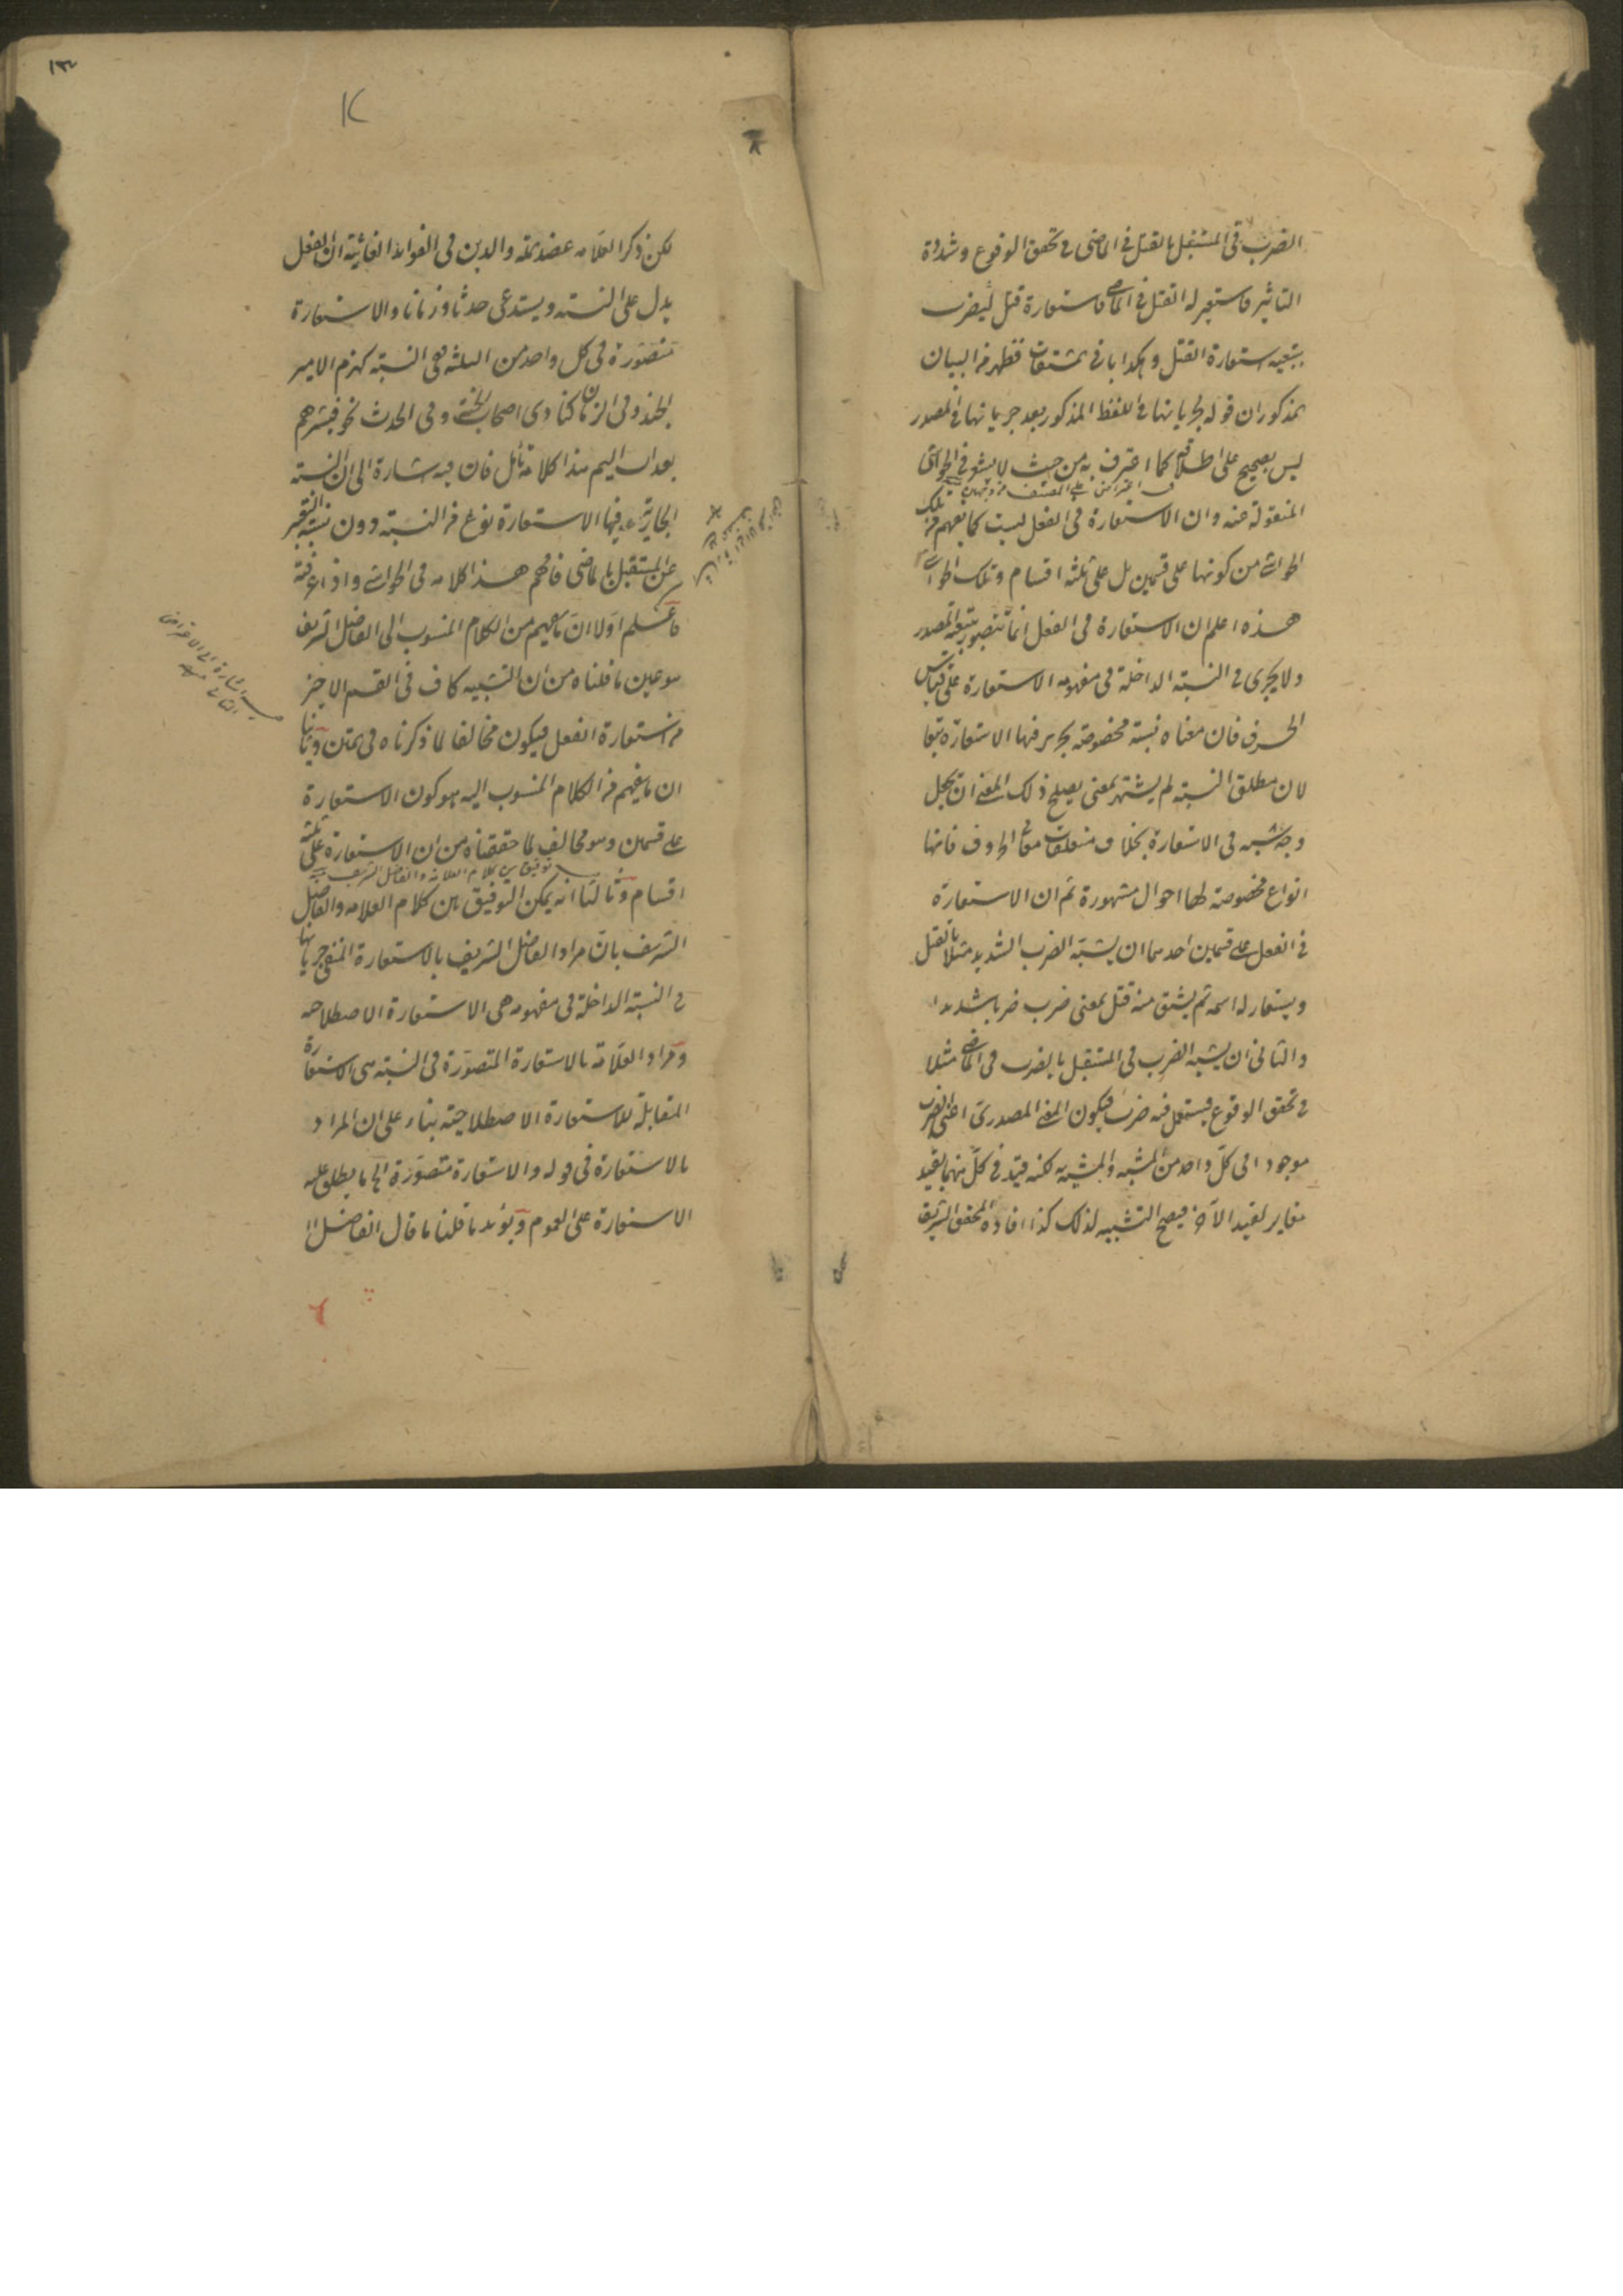 الضرب فى المستقبل بالقتل فى الماضى فى تحقق الوقوع وشدة
التاثير فاستعير له القتل فى الماضى فاستعارة قتل ليضرب
بتبعية استعارة القتل وهكذا باقى المشتقات فظهر من البيان
المذكور ان قوله لجريانها فى اللفظ المذكور بعد جريانها فى المصدر
ليس بصحيح على اطلاقه كما اعترف به من حيث لا يشعر فى الحواشى
اعتراض على المصنف من وجهين
المنقولة عنه وان الاستعارة فى الفعل ليست كما يفهم من تلك
الحواشى من كونها على قسمين بل على ثلثة اقسام وتلك الحواشى
هذه اعلم ان الاستعارة فى الفعل انما تتصور بتبعية المصدر
ولا يجرى فى النسبة الداخلة فى مفهومه الاستعارة على قياس
الحرف فان معناه نسبة مخصوصة يجرى فيها الاستعارة تبعا
لان مطلق النسبة لم يشتهر بمعنى يصلح ذلك المعنى ان يجعل
وجه شبه فى الاستعارة بخلاف متعلقات معانى الحروف فانها
انواع مخصوصة لها احوال مشهورة ثم ان الاستعارة
فى الفعل على قسمين احدهما ان يشبه الضرب الشديد مثلا بالقتل
ويستعار له اسمه ثم يشتق منه قتل بمعنى ضرب ضربا شديدا
والثانى ان يشبه الضرب فى المستقبل بالضرب فى الماضى مثلا
فى تحقق الوقوع فيستعمل فيه ضرب فيكون المعنى المصدرى اعنى الضرب
موجودا فى كل واحد من المشبه والمشبه به لكنه قيد فى كل منهما بقيد
مغاير لقيد الآخر فيصح التشبيه لذلك كذا افاده المحقق الشريف
لكن ذكر العلامه عضد الملة والدين فى الفوائد الغياثية ان الفعل
يدل على النسبة ويستدعى حدثا وزمانا والاستعارة
متصورة فى كل واحد من الثلثه ففى النسبة كهزم الامير
الجند وفى الزمان كنادى اصحاب الجنة وفى الحدث نحو فبشرهم
بعذاب اليم هذا كلامه تأمل فان فيه اشارة الى ان النسبة
الجارية فيها الاستعارة نوع من النسبة دون نسبة التعبير
عن المستقبل بالماضى فافهم هذا كلامه فى الحواشى واذا عرفته
فاعلم اولا ان ما يفهم من الكلام المنسوب الى الفاضل الشريف
هو عين ما قلناه من ان التشبيه كاف فى القسم الاخير
من استعارة الفعل فيكون مخالفا لما ذكرناه فى المتن وثانيا
ان ما يفهم من الكلام المنسوب اليه هو كون الاستعارة
على قسمين وهو مخالف لما حققناه من ان الاستعارة على ثلثة
توفيق بين كلام العلامة والفاضل الشريف
اقسام وثالثا انه يمكن التوفيق بين كلام العلامه والفاضل
الشريف بان مراد الفاضل الشريف بالاستعارة المنفى جريانها
فى النسبة الداخلة فى مفهومه هى الاستعارة الاصطلاحيه
ومراد العلامة بالاستعارة المتصورة فى النسبة هى الاستعارة
المقابلة للاستعارة الاصطلاحية بناء على ان المراد
بالاستعارة فى قوله والاستعارة متصورة الخ ما يطلق عليه
الاستعارة على العموم ويؤيد ما قلنا ما قال الفاضل
اشارة الى الاعتراض